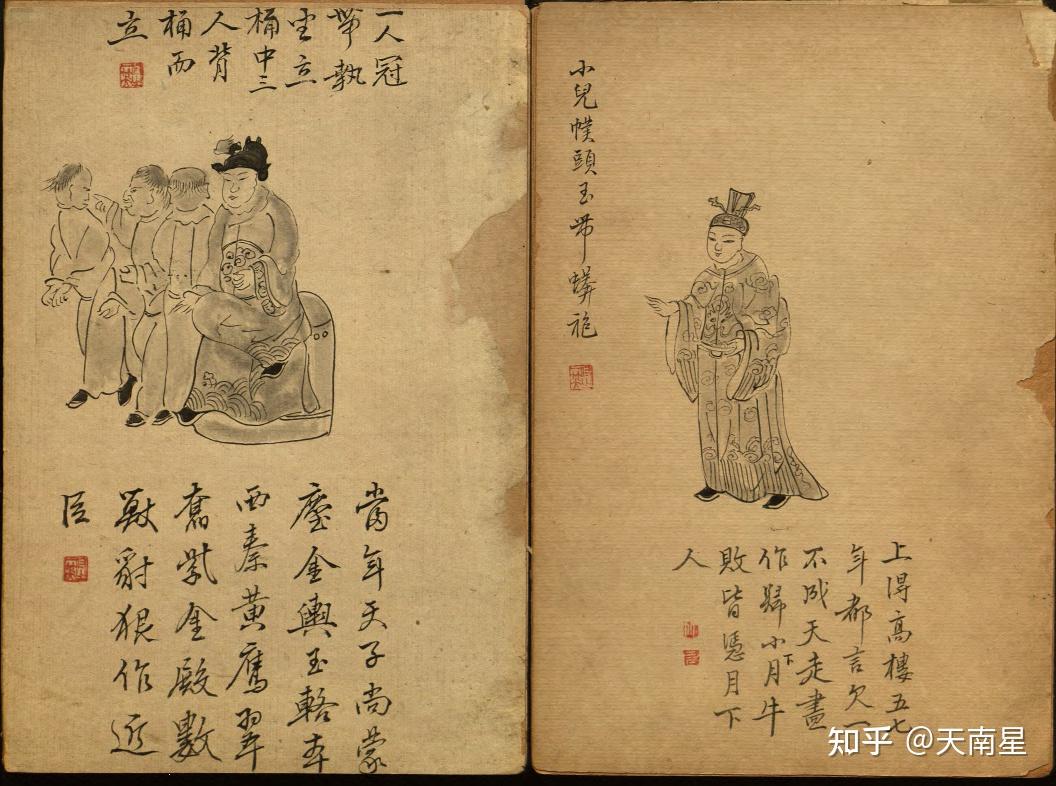 小兒幞頭玉帶蟒袍
上得高樓五七
年都言欠一
不成天走盡
作歸小下月牛
敗皆憑月下
人
一人冠
帶執
坐立
桶中三
人背
桶而
立
當年天子尚蒙
塵金輿玉輅奔
西秦黃鷹
奮紫金殿數
獸豺狼作近
臣
知乎 @天南星